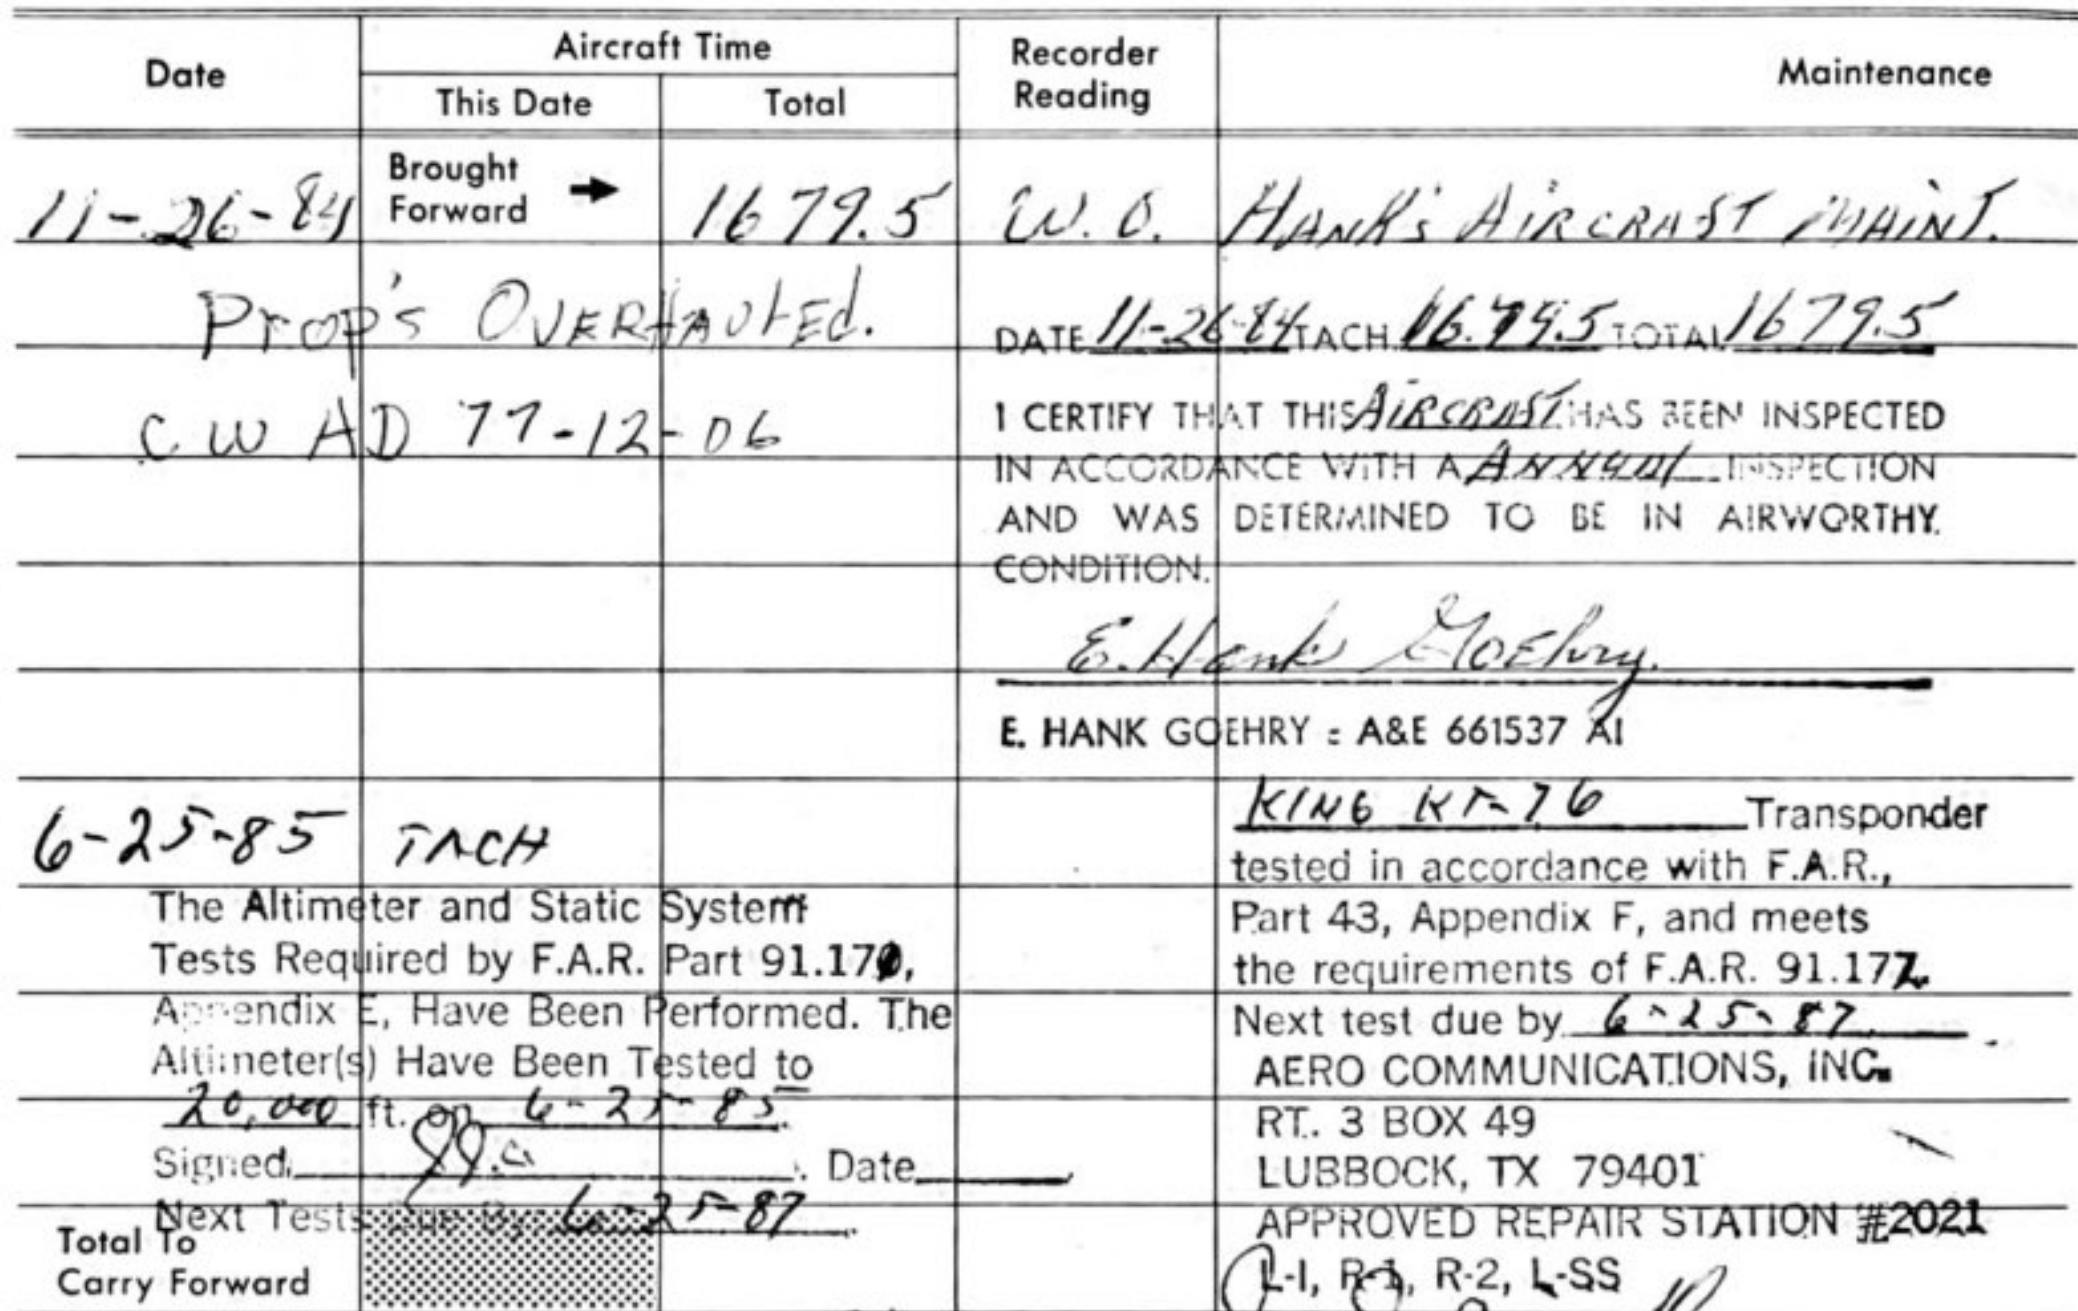 Date
Aircraft Time
This Date
Total
Recorder
Reading
Maintenance
11-26-84
Brought
Forward
1679.5
W.O.
HANK'S AIRCRAFT MAINT.
Prop's OVERHAULED.
CW AD 77-12-06
DATE 11-26-84 TACH 1679.5 TOTAL 1679.5
I CERTIFY THAT THIS AIRCRAFT HAS BEEN INSPECTED
IN ACCORDANCE WITH A ANNUAL INSPECTION
AND WAS DETERMINED TO BE IN AIRWORTHY
CONDITION.
E. Hank Goehry.
E. HANK GOEHRY = A&E 661537 AI
6-25-85 TACH
The Altimeter and Static System
Tests Required by F.A.R. Part 91.170,
Appendix E, Have Been Performed. The
Altimeter(s) Have Been Tested to
20,000 ft. on 6-25-85.
Signed Date
Next Tests Due By 6-25-87
Total To
Carry Forward
KING KT-76 Transponder
tested in accordance with F.A.R.,
Part 43, Appendix F, and meets
the requirements of F.A.R. 91.172
Next test due by 6-25-87
AERO COMMUNICATIONS, INC.
RT. 3 BOX 49
LUBBOCK, TX 79401
APPROVED REPAIR STATION #2021
L-I, R-1, R-2, L-SS